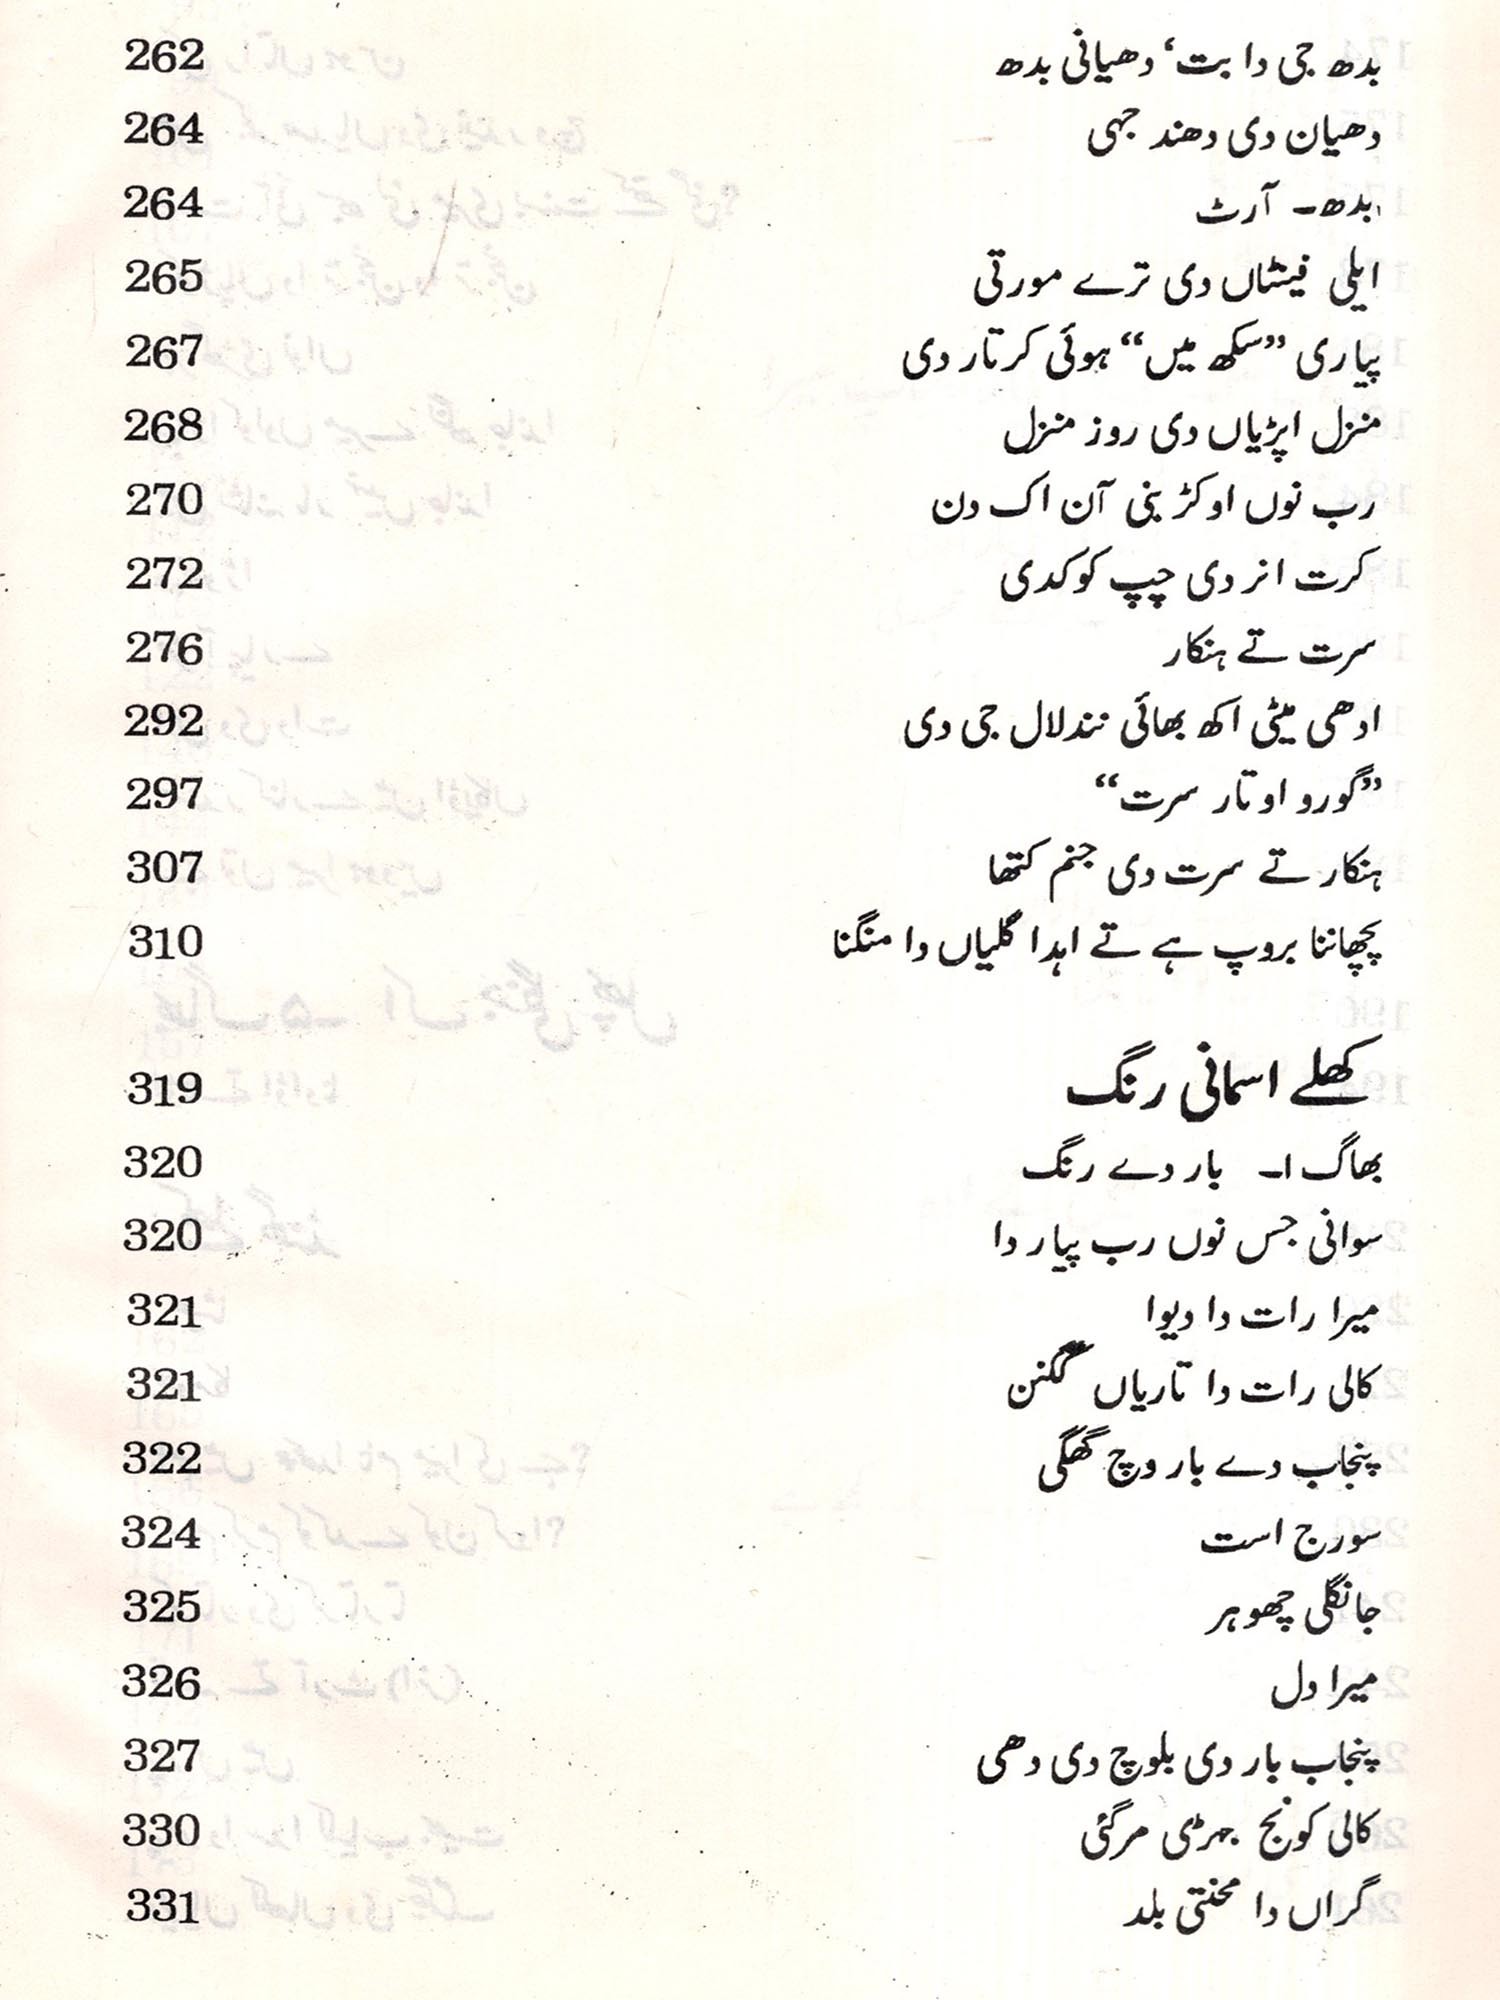 بدھ جی دا بت، دھیانی بدھ 262
دھیان دی دھند جہی 264
بدھ۔ آرٹ 264
ایلی فینٹاں دی ترے مورتی 265
پیاری ”سکھ میں“ ہوئی کرتار دی 267
منزل اپڑیاں دی روز منزل 268
رب نوں اوکڑ بنی آن اک دن 270
کرت انر دی چپ کوکدی 272
سرت تے ہنکار 276
ادھی میٹی اکھ بھائی نندلال جی دی 292
”گورو اوتار سرت“ 297
ہنکار تے سرت دی جنم کتھا 307
پچھاننا بروپ ہے تے اہدا گلیاں دا منگنا 310
کھلے اسمانی رنگ 319
بھاگ ۱۔ بار دے رنگ 320
سوانی جس نوں رب پیار دا 320
میرا رات دا دیوا 321
کالی رات دا تاریاں گگنن 321
پنجاب دے بار وچ گھگی 322
سورج است 324
جانگلی چھوہر 325
میرا دل 326
پنجاب بار دی بلوچ دی دھی 327
کالی کونج جہڑی مر گئی 330
گراں دا محنتی بلد 331